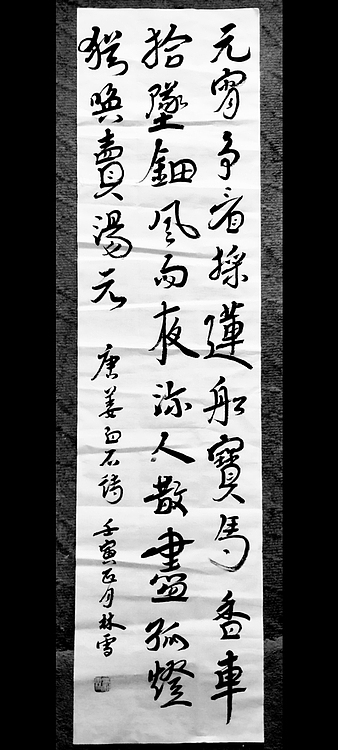 元宵争看採蓮船寶馬香車
拾墜鈿風雨夜深人散盡孤燈
猶喚賣湯元
唐姜白石诗 壬寅正月林雪